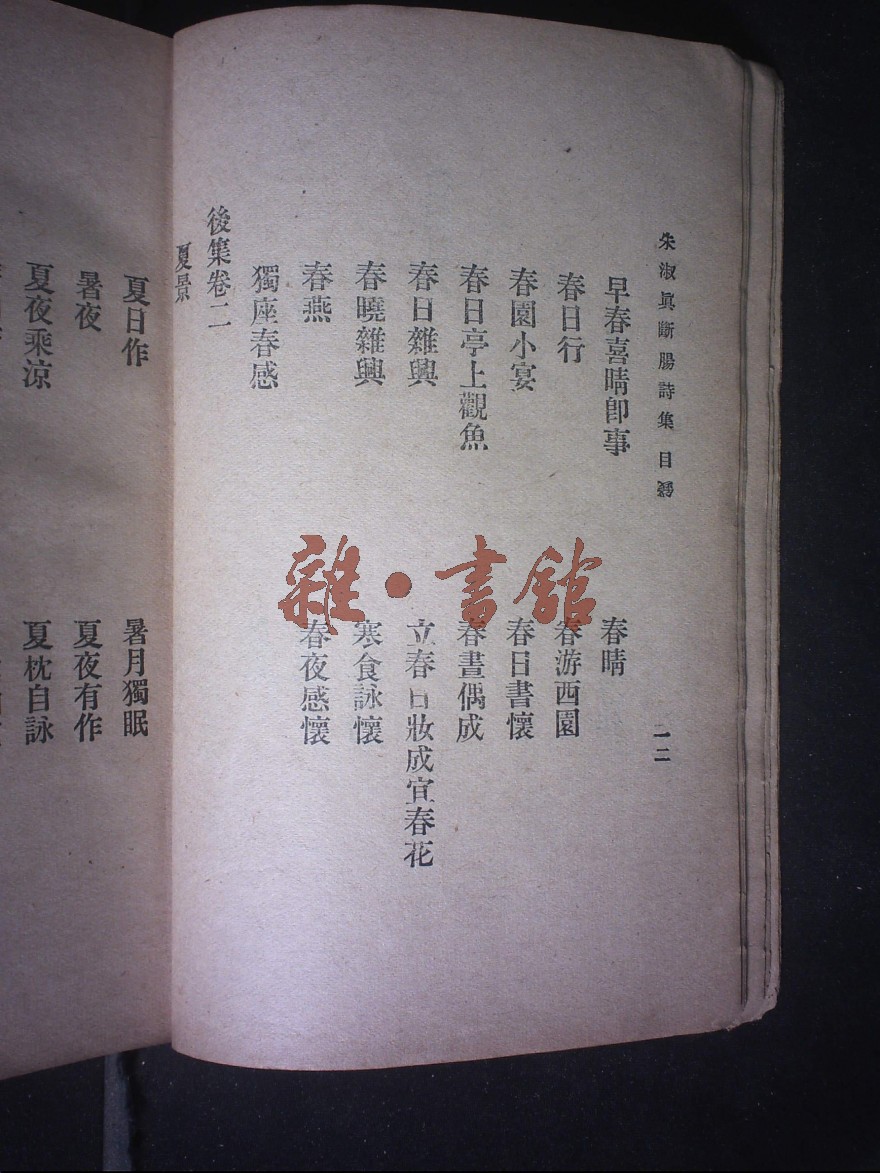 朱淑眞斷腸詩集 目錄 一二
早春喜晴卽事 春晴
春日行 春游西園
春園小宴 春日書懷
春日亭上觀魚 春晝偶成
春日雜興 立春日妝成宜春花
春曉雜興 寒食詠懷
春燕 春夜感懷
獨座春感
後集卷二
夏景
夏日作 暑月獨眠
暑夜 夏夜有作
夏夜乘涼 夏枕自詠
雜·書館